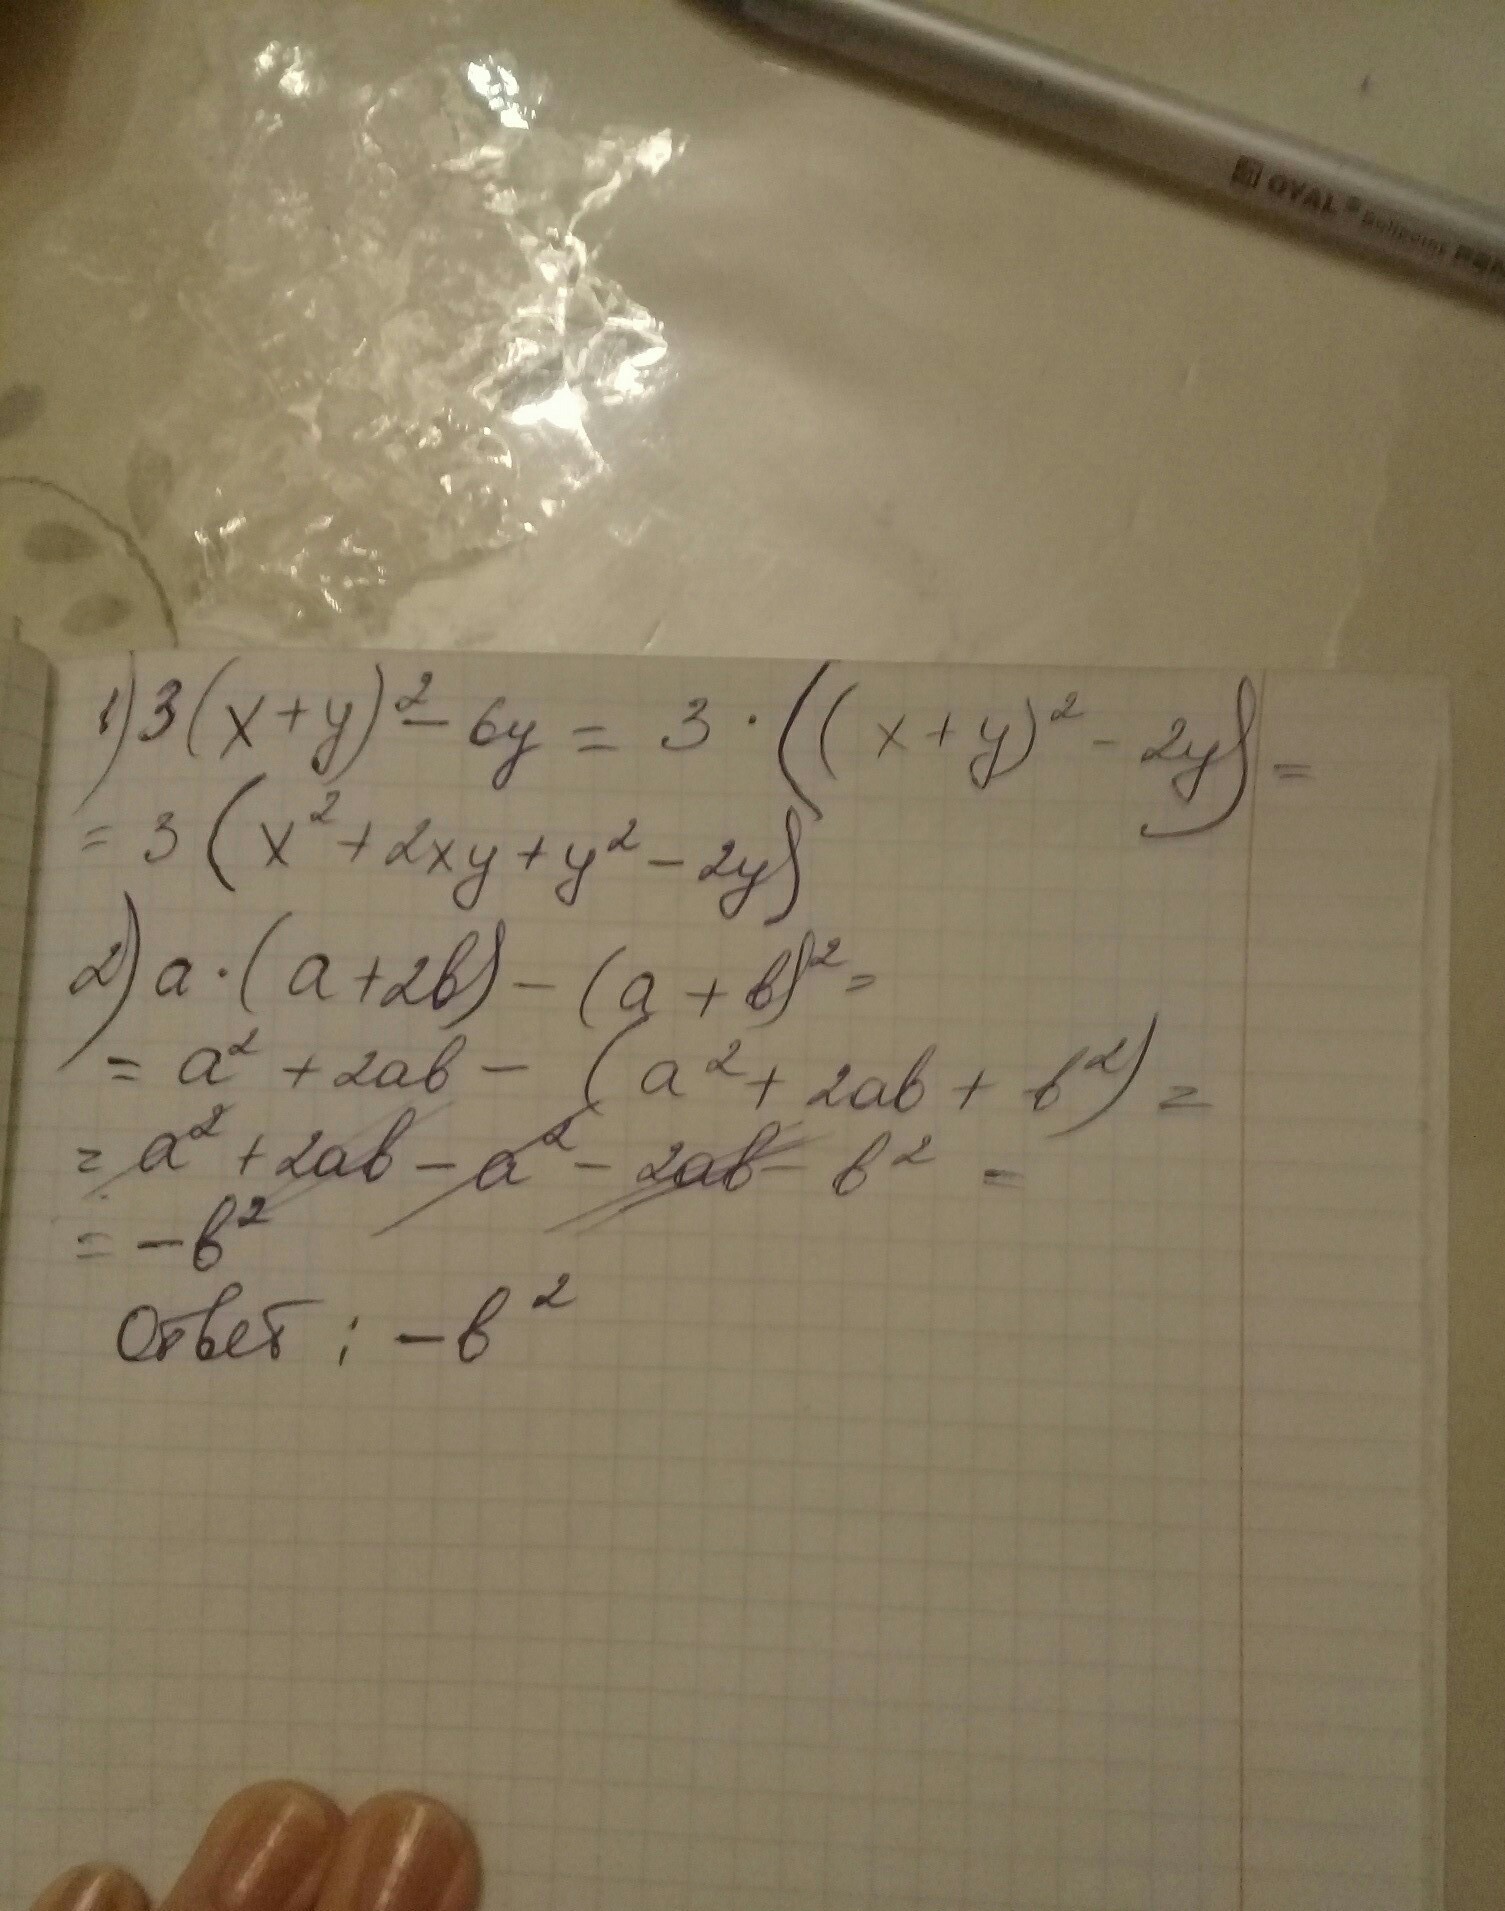 OVAL® Ballpoint
1) 3(x+y)² - 6y = 3 · ((x+y)² - 2y) =
= 3 (x² + 2xy + y² - 2y)
2) a·(a+2b) - (a+b)² =
= a² + 2ab - (a² + 2ab + b²) =
= a² + 2ab - a² - 2ab - b² =
= -b²
Ответ: -b²